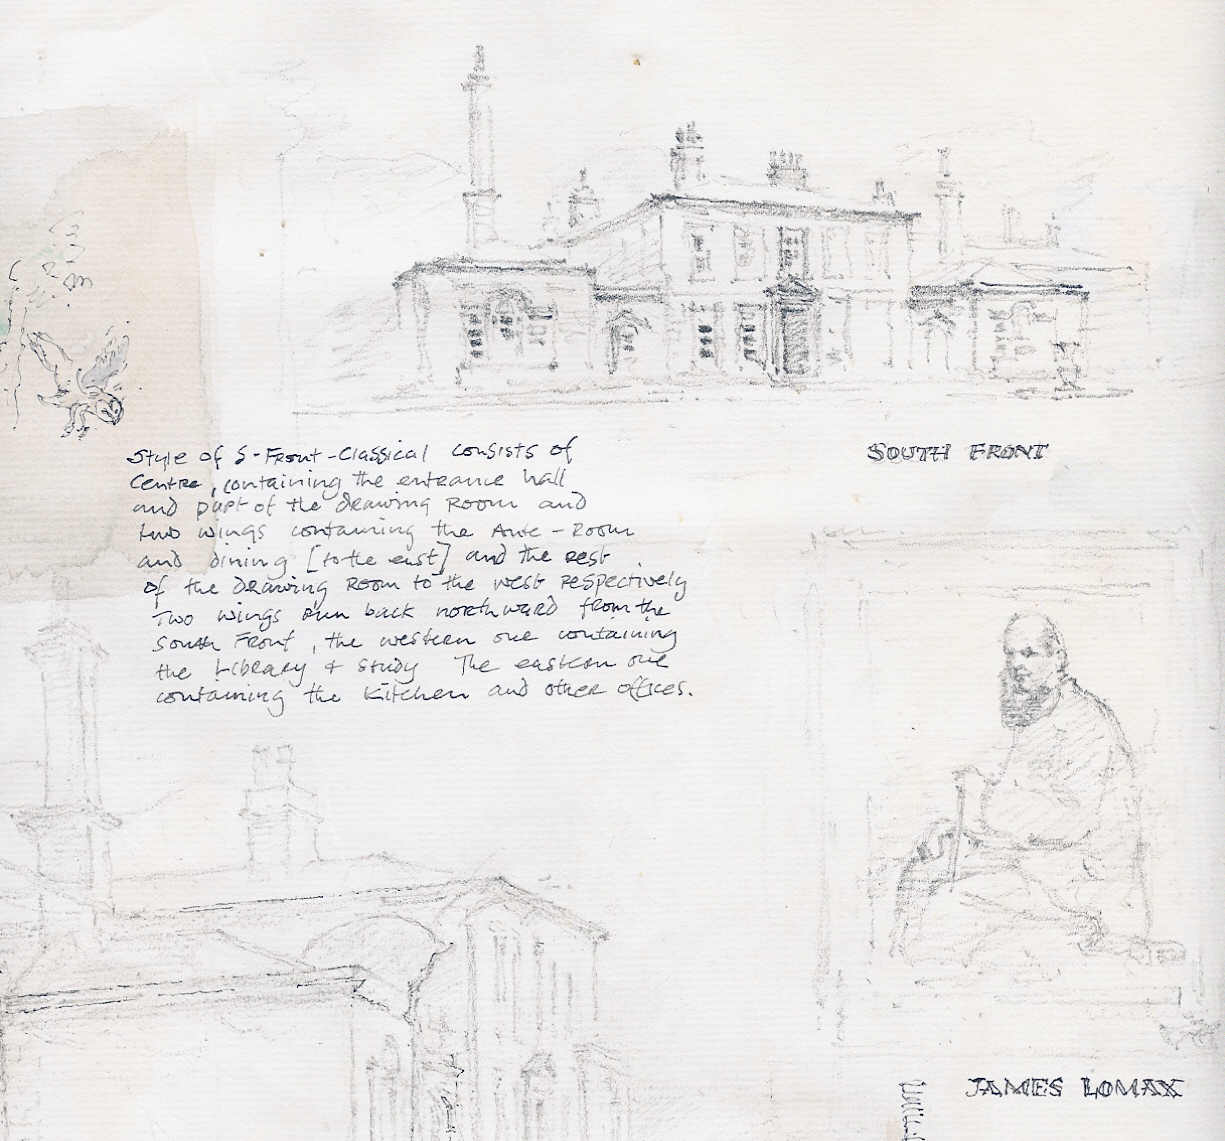 Style of S-Front-Classical consists of
Centre, containing the entrance hall
and part of the drawing Room and
two wings containing the Ante-Room
and dining [to the east] and the rest
of the drawing Room to the west respectively
Two wings run back northward from the
South Front, the western one containing
the Library & Study The eastern one
containing the Kitchen and other offices.
SOUTH FRONT
JAMES LOMAX